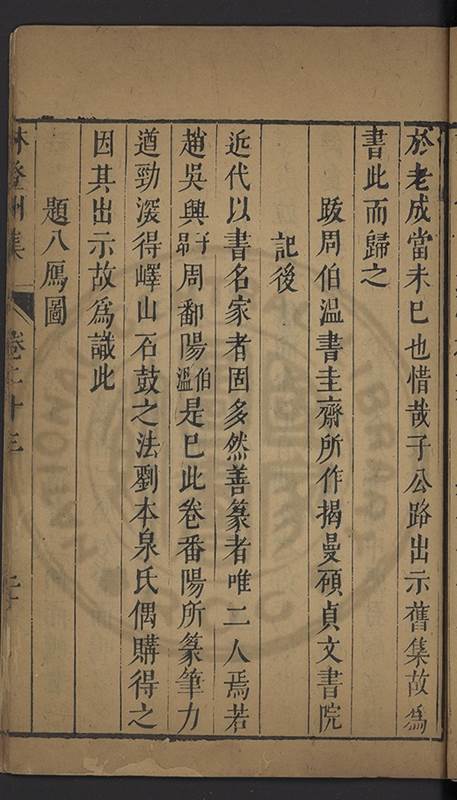 於老成當未巳也惜哉子公路出示舊集故為
書此而歸之
跋周伯温書圭齋所作揭曼碩貞文書院
記後
近代以書名家者固多然善篆者唯二人焉若
趙吳興子昻周鄱陽伯温是巳此卷番陽所篆筆力
遒勁深得嶧山石鼓之法劉本泉氏偶購得之
因其出示故為識此
題八鴈圖
林登州集
卷二十三